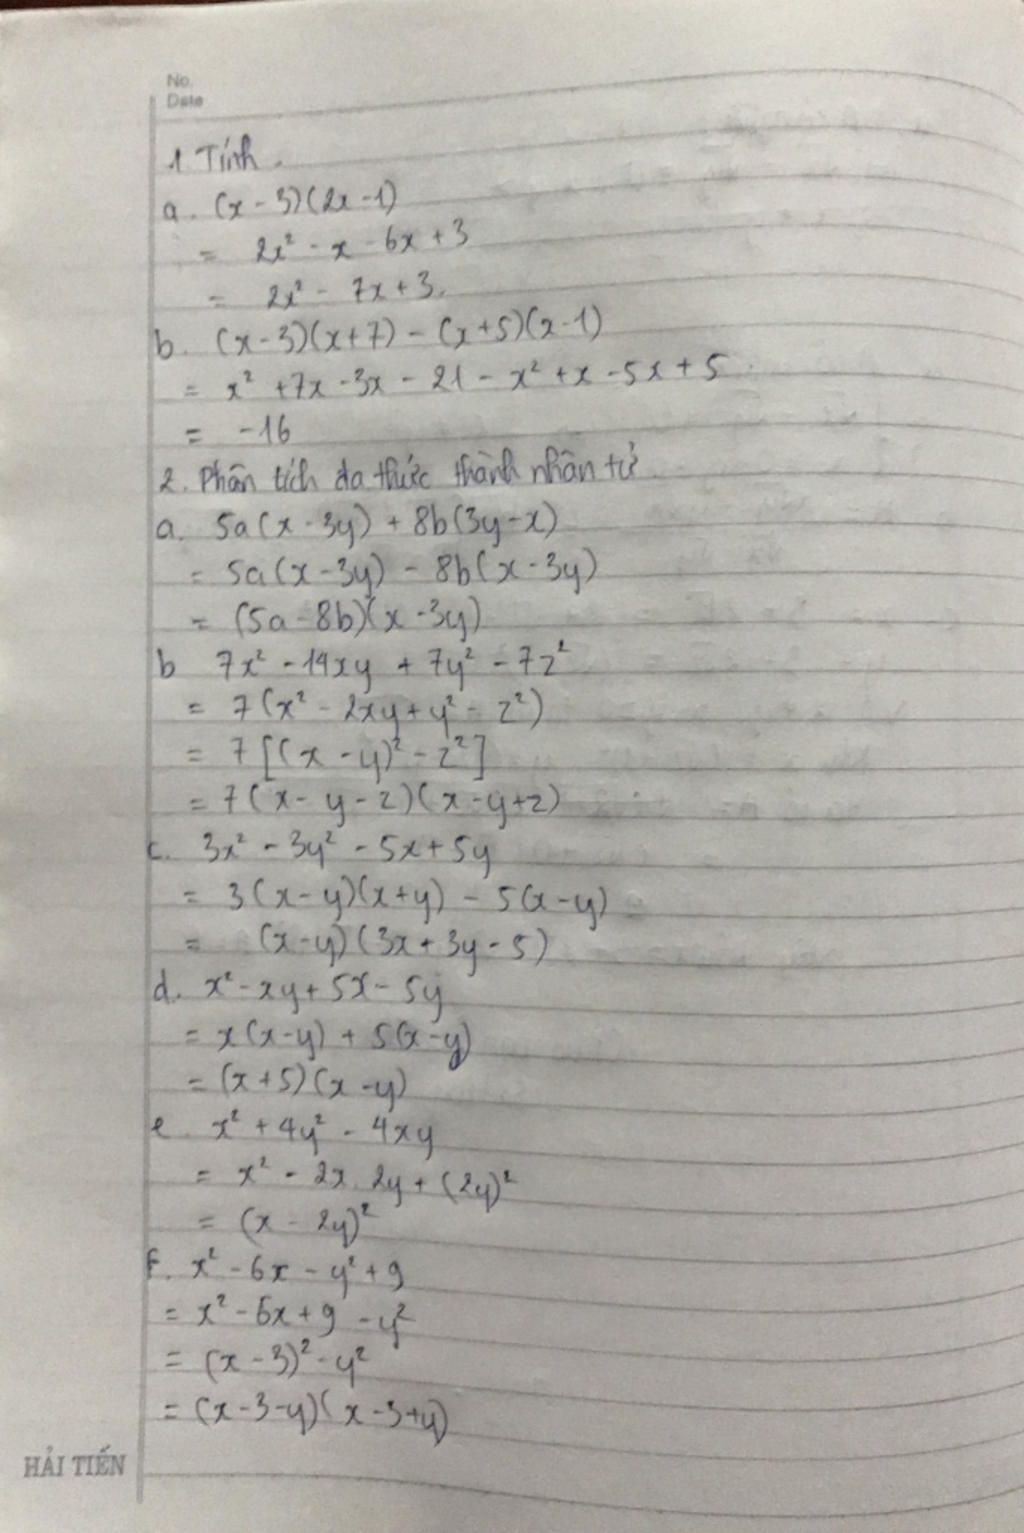 No.
Date
1. Tính.
a. (x - 3)(2x - 1)
= 2x² - x - 6x + 3
= 2x² - 7x + 3.
b. (x - 3)(x + 7) - (x + 5)(x - 1)
= x² + 7x - 3x - 21 - x² + x - 5x + 5
= -16
2. Phân tích đa thức thành nhân tử
a. 5a(x - 3y) + 8b(3y - x)
= 5a(x - 3y) - 8b(x - 3y)
= (5a - 8b)(x - 3y)
b 7x² - 14xy + 7y² - 7z²
= 7(x² - 2xy + y² - z²)
= 7[(x - y)² - z²]
= 7(x - y - z)(x - y + z)
c. 3x² - 3y² - 5x + 5y
= 3(x - y)(x + y) - 5(x - y)
= (x - y)(3x + 3y - 5)
d. x² - xy + 5x - 5y
= x(x - y) + 5(x - y)
= (x + 5)(x - y)
e. x² + 4y² - 4xy
= x² - 2x.2y + (2y)²
= (x - 2y)²
f. x² - 6x - y² + 9
= x² - 6x + 9 - y²
= (x - 3)² - y²
= (x - 3 - y)(x - 3 + y)
HẢI TIẾN